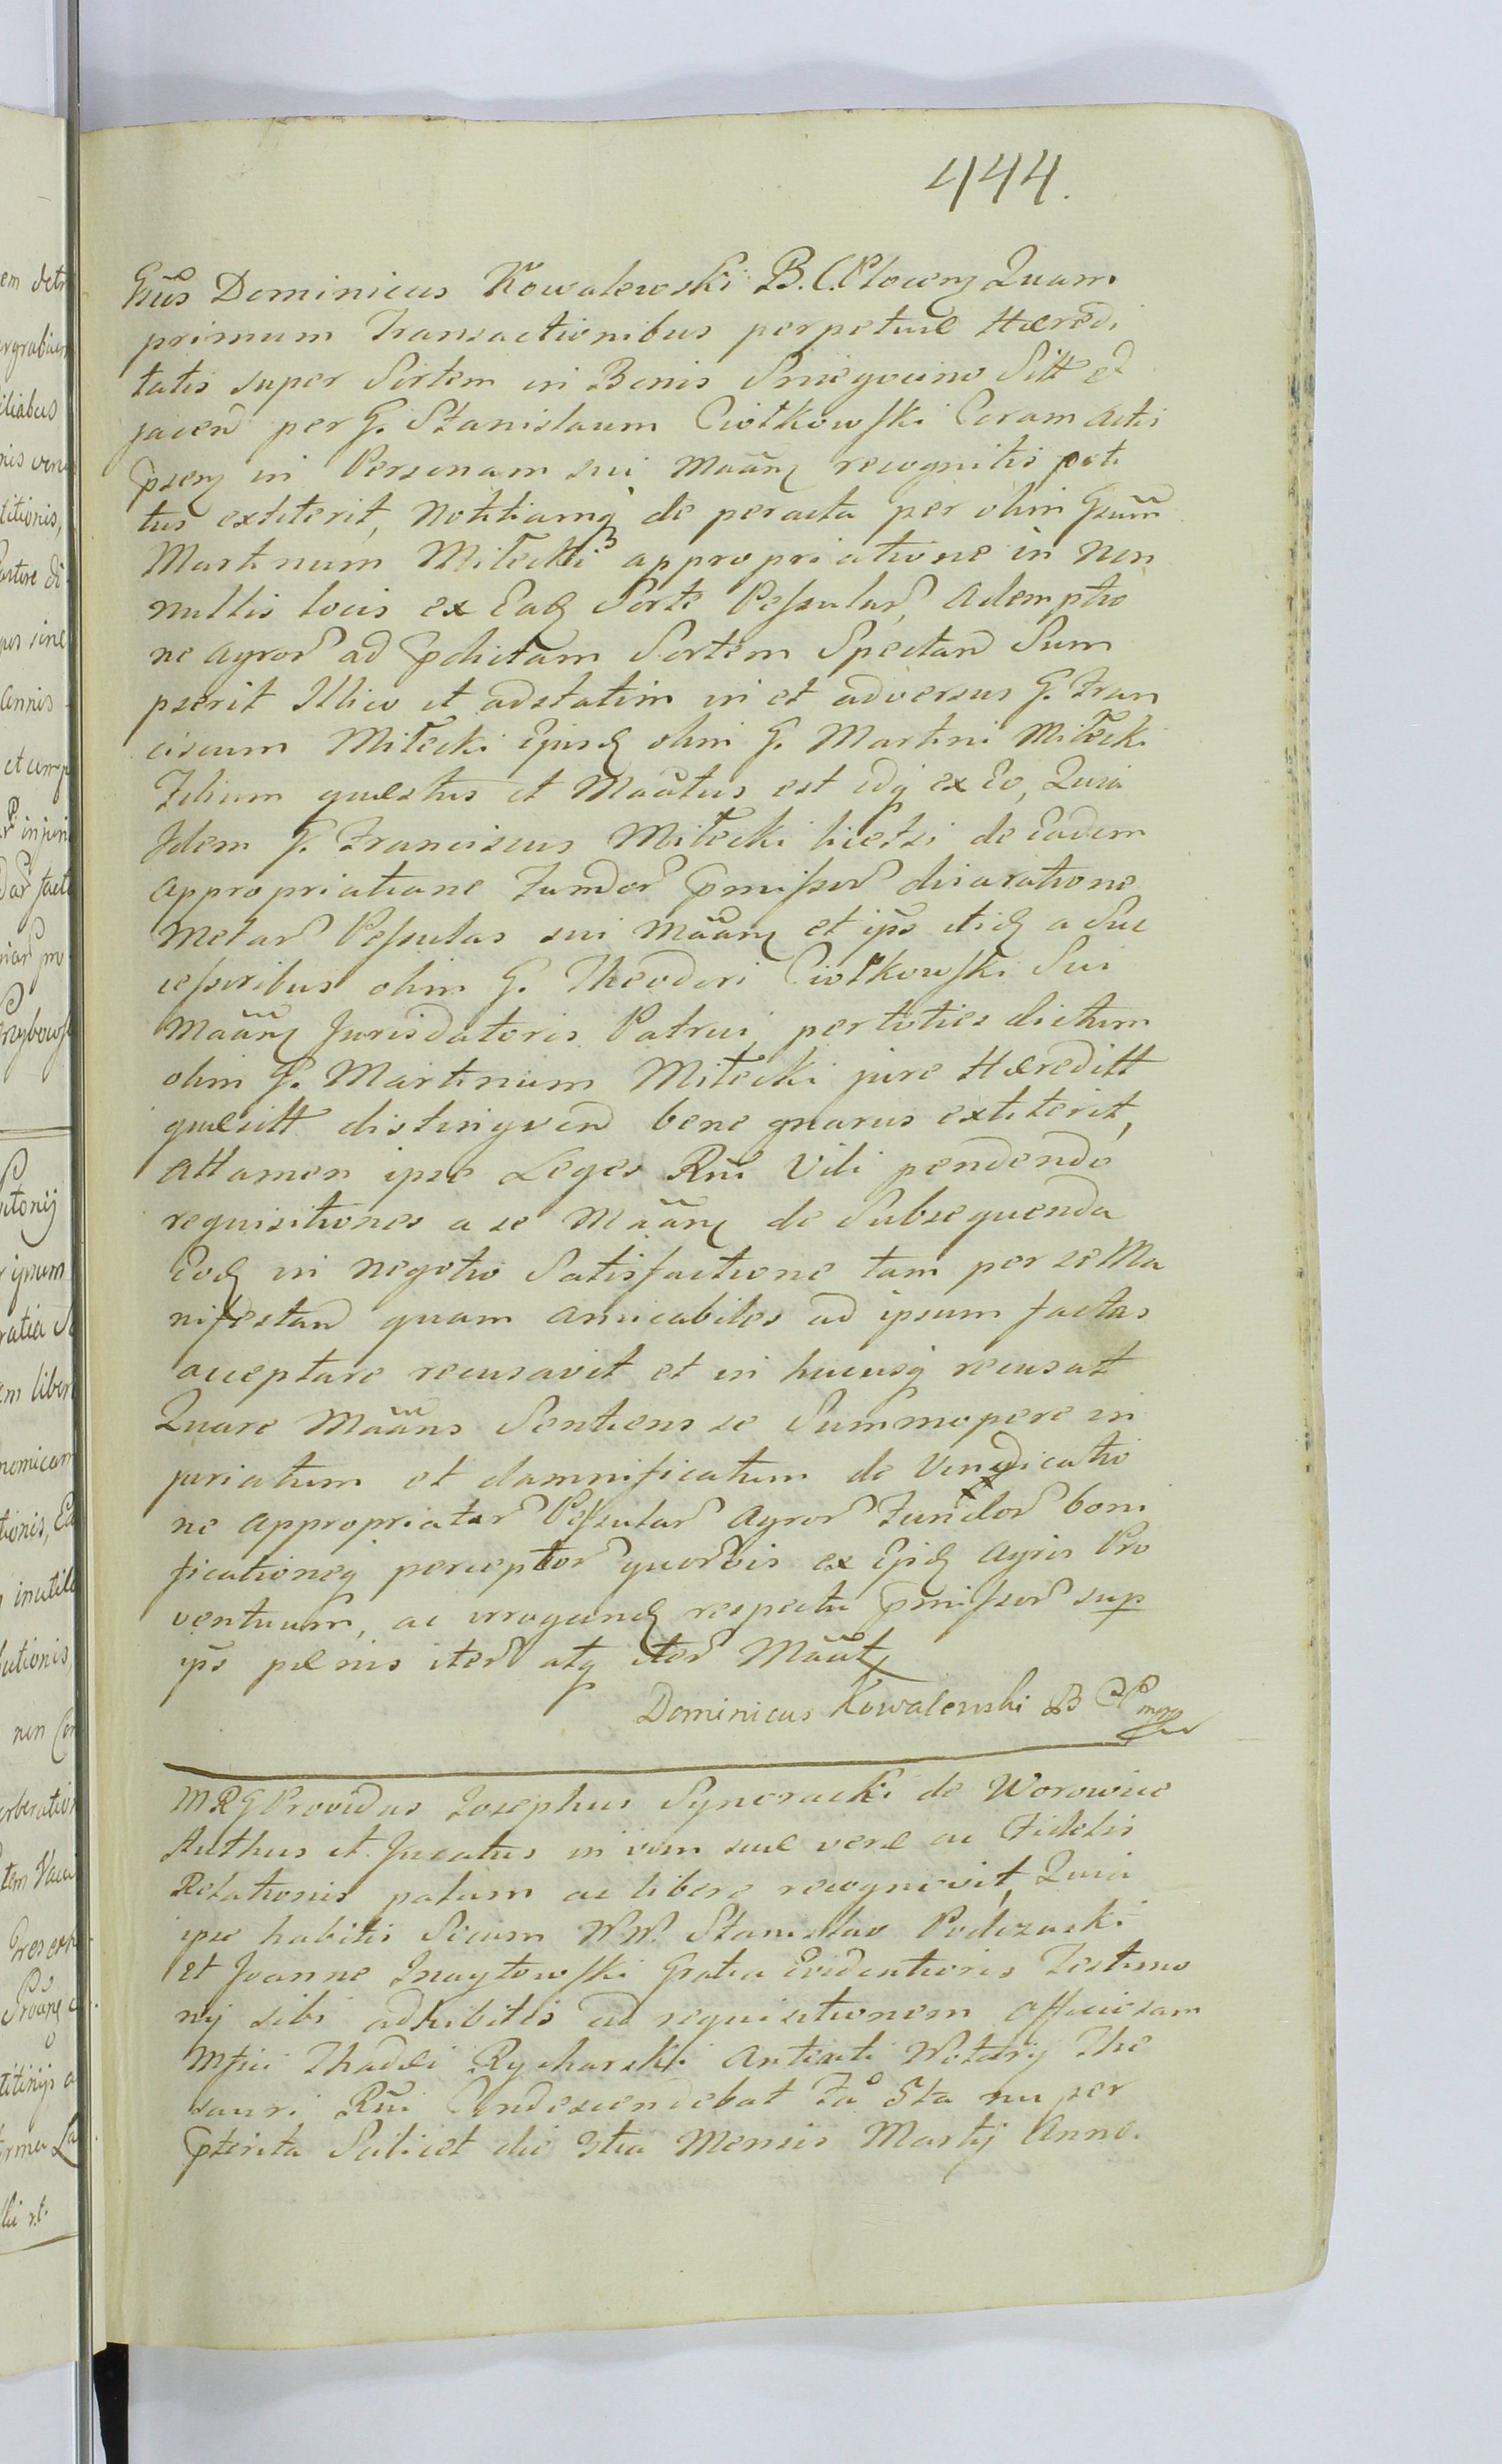 444.
Gnũs Dominicus Kowalewski B. C. Plocenz Quam
primum Transactionibus perpetuæ Hæredi
tatis super Sortem in Bonis Smiegocino Sitt et
jacen per G. Stanislaum Ciołkowski Coram Actis
pnsenz in Personam sui Maãnz recognitis poti
tus extiterit, Notitiamq de peracta per olim Gnũm
Martinum Miłecki appropriatione in Non
nullis locis ex Eadz Sorte Pessular Ademptio
ne Agror ad pdictam Sortem Spectan Sum
pserit Illico et adstatim in et adversus G. Fran
ciscum Miłecki Ejusdz olim G. Martini Miłecki
Filium quæstus et Maãtus est idq ex Eo, Quia
Idem G. Franciscus Miłecki licetsi de Eadem
Appropriatione Fundor pmissor disaratione
Metar Pessulas sui Maãnz et ips itidz a Suc
cessoribus olim G. Theodori Ciołkowski Sui
Maãnz Jurisdatoris Patrui per toties dictum
olim G. Martinum Miłecki jure Hæreditt
quæsitt distingven bene gnarus extiterit,
Attamen ipse Leges Rni Vili pendendo
requisitiones a se Maãnz de Subsequenda
Eodz in Negotio Satisfactione tam per se Ma
nifestan quam amicabiles ad ipsum factas
acceptare recusavit et in hucusq recusat
Quare Maãns Sentiens se Summopere in
juriatum et damnificatum de Vindicatio
ne appropriatar Pessular Agror Fundor boni
ficationeq perceptor quorvis ex Ejsdz Agris Pro
ventuum, ac irrogandz respectu pmissor sup
ips pænis iter atq iter Maãt
Dominicus Kowalewski B C P mpp
MRG Providus Josephus Syneracki de Worowice
Authus et Juratus in vim suæ veræ ac Fidelis
Relationis palam ac libere recognovit, Quia
ipse habitis Secum NN. Stanislao Podczaski
et Joanne Snaytowski Gratia Evidentioris Testimo
nij sibi adhibitis ad requisitionem Officiosam
Mfici Thadæi Rycharski Antiati Notarij The
sauri Rni Condescendebat Fa 5ta nuper
pterita Scilicet die 3tia Mensis Martij Anno.